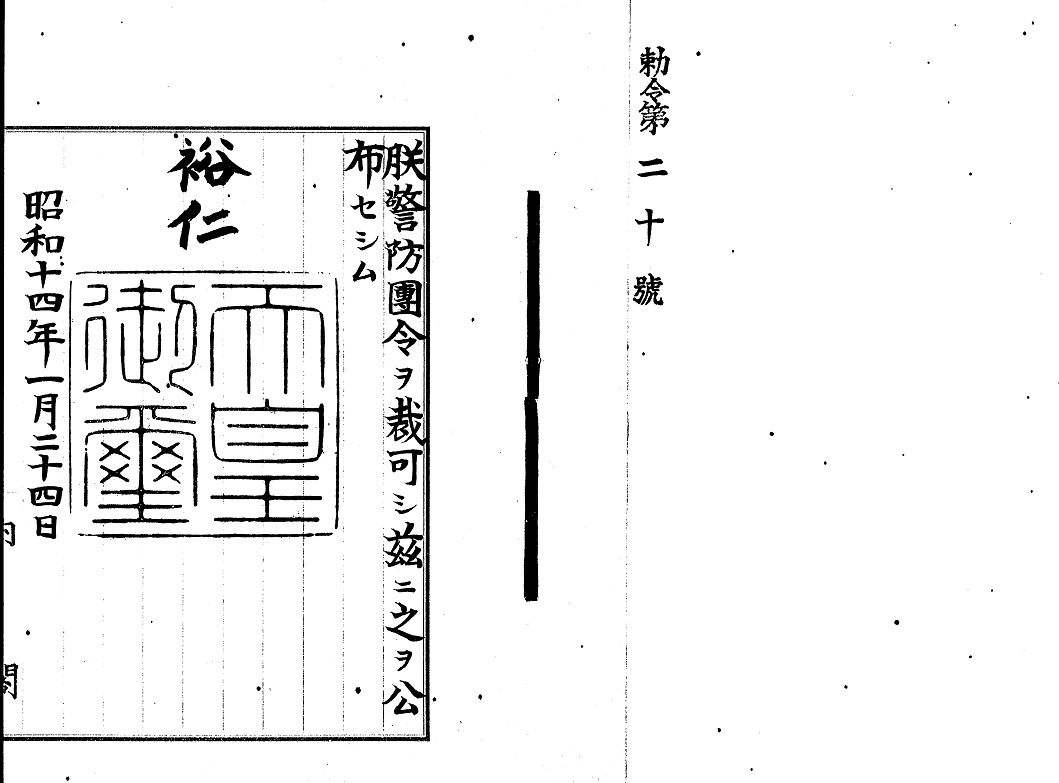 勅令第二十號
朕警防團令ヲ裁可シ茲ニ之ヲ公
布セシム
裕仁
天皇
御璽
昭和十四年一月二十四日
内閣